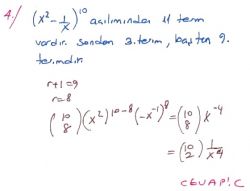 4./ (x² - 1/x)¹⁰ açılımında 11 term
vardır. sondan 3. terim, baştan 9.
terimdir
r+1=9
r=8
(10 8)(x²)¹⁰⁻⁸(-x⁻¹)⁸ = (10 8) x⁻⁴
= (10 2) 1/x⁴
CEVAP: C